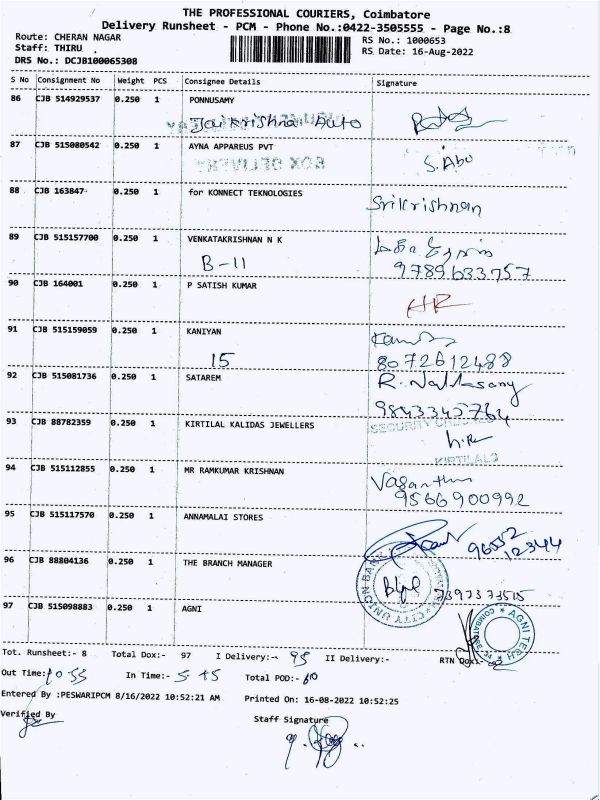 THE PROFESSIONAL COURIERS, Coimbatore
Delivery Runsheet - PCM - Phone No.:0422-3505555 - Page No.:8
Route: CHERAN NAGAR
Staff: THIRU
DRS No.: DCJB100065308
RS No.: 1000653
RS Date: 16-Aug-2022
S No Consignment No Weight PCS Consignee Details Signature
86 CJB 514929537 0.250 1 PONNUSAMY
Jaikrishna Auto
87 CJB 515080542 0.250 1 AYNA APPAREUS PVT
BOX DELIVERY
S. Abu
88 CJB 163847 0.250 1 for KONNECT TEKNOLOGIES
Srikrishnan
89 CJB 515157700 0.250 1 VENKATAKRISHNAN N K
B-11
9789633757
90 CJB 164001 0.250 1 P SATISH KUMAR
HR
91 CJB 515159059 0.250 1 KANIYAN
15
8072612488
92 CJB 515081736 0.250 1 SATAREM
9843345764
93 CJB 88782359 0.250 1 KIRTILAL KALIDAS JEWELLERS
SECURITY
h.r
94 CJB 515112855 0.250 1 MR RAMKUMAR KRISHNAN
Vasanthu
9566900992
95 CJB 515117570 0.250 1 ANNAMALAI STORES
96552
12344
96 CJB 88804136 0.250 1 THE BRANCH MANAGER
CITY UNION BANK
7397373515
97 CJB 515098883 0.250 1 AGNI
AGNI TECH
Tot. Runsheet:- 8 Total Dox:- 97 I Delivery:- 95 II Delivery:- RTN Dox:-
Out Time: 10 55 In Time:- 5 45 Total POD:- 60
Entered By :PESWARIPCM 8/16/2022 10:52:21 AM Printed On: 16-08-2022 10:52:25
Verified By
Staff Signature